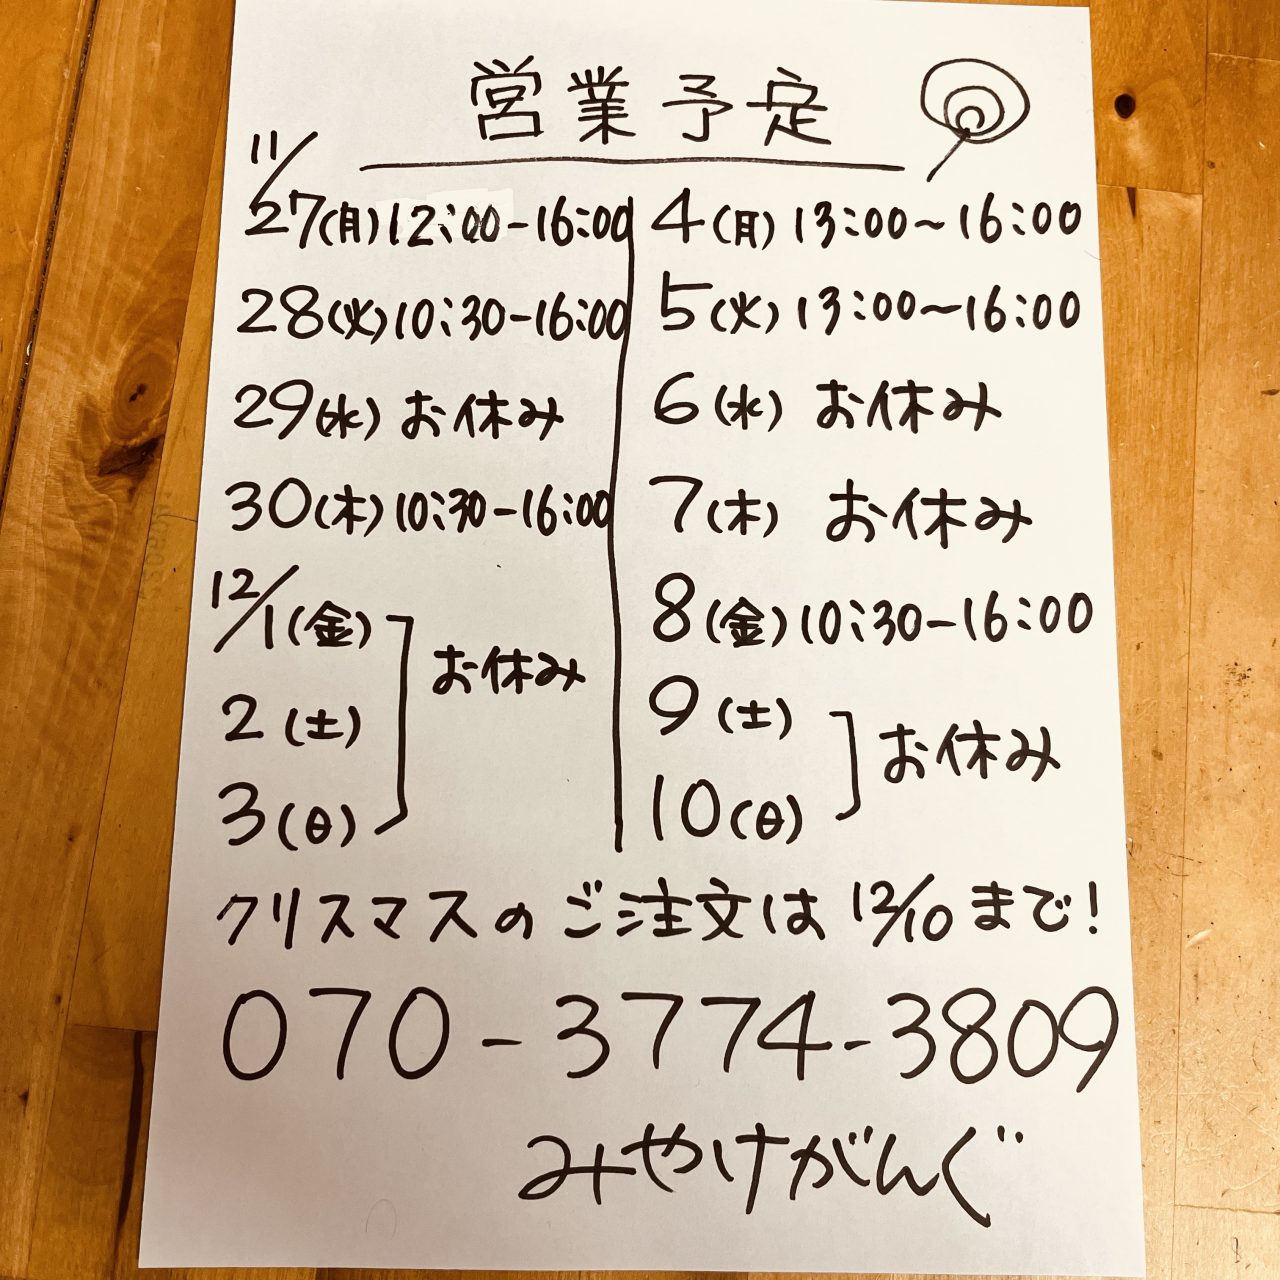 営業予定
11/27(月)12:00-16:00
28(火)10:30-16:00
29(水)お休み
30(木)10:30-16:00
12/1(金)
2(土)
3(日)
お休み
4(月)13:00~16:00
5(火)13:00~16:00
6(水)お休み
7(木)お休み
8(金)10:30-16:00
9(土)
10(日)
お休み
クリスマスのご注文は12/10まで!
070-3774-3809
みやけがんぐ